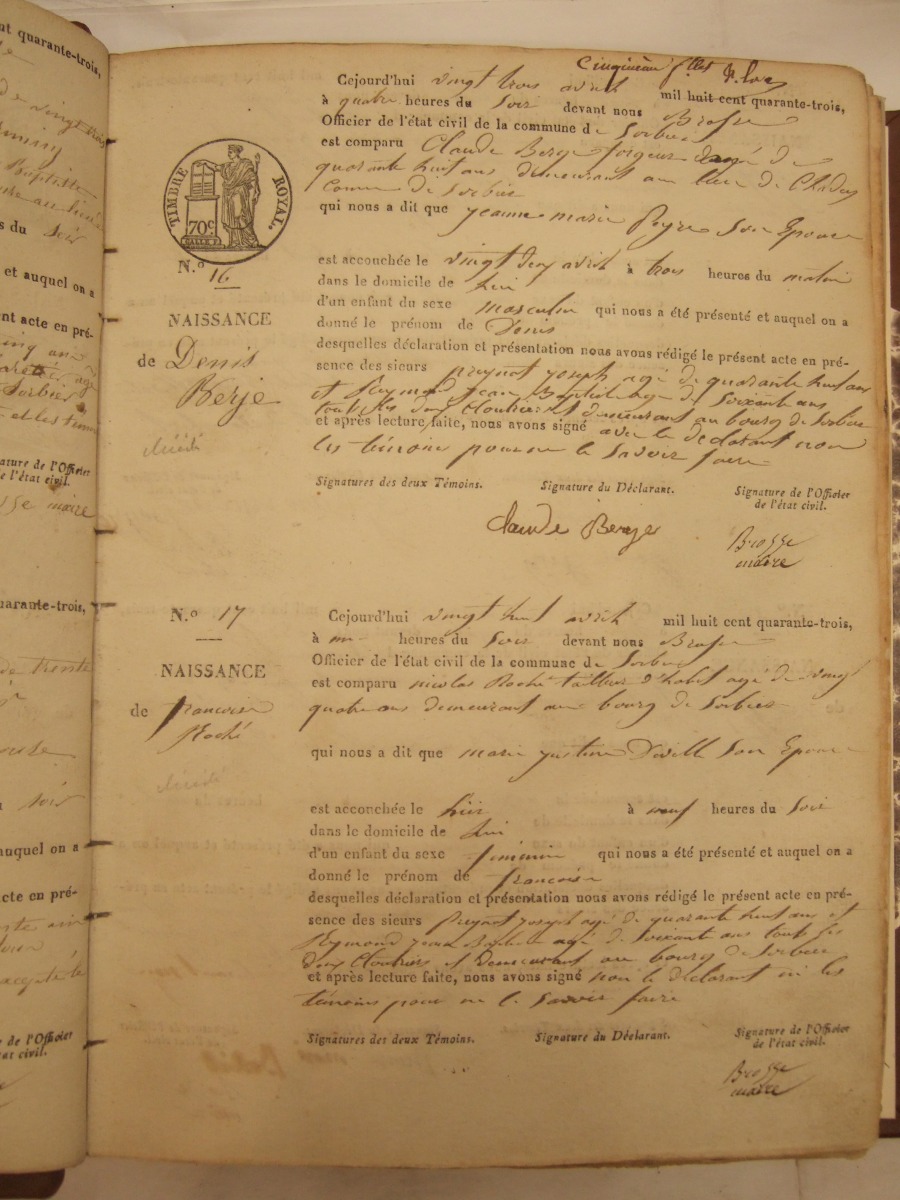 nt quarante-trois,
Baptiste
s du Soir
et auquel on a
nt acte en pré-
cinq ans
Sorbier
et les témoins
nature de l'Officier
de l'état civil.
maire
uarante-trois,
de trente
soir
auquel on a
cte en pré-
de l'Officier
état civil.
Cinquième
Cejourd'hui vingt trois avril mil huit cent quarante-trois,
à quatre heures du Soir devant nous Brosse
Officier de l'état civil de la commune de Sorbier
est comparu Claude Berge forgeur agé de
quarante huit ans demeurant au lieu de
Comune de Sorbier
qui nous a dit que jeanne marie Peyre Son Epouse
TIMBRE ROYAL.
70c
est accouchée le vingt deux avril à trois heures du matin
dans le domicile de lui
d'un enfant du sexe masculin qui nous a été présenté et auquel on a
donné le prénom de Denis
desquelles déclaration et présentation nous avons rédigé le présent acte en pré-
sence des sieurs preynat joseph agé de quarante huit ans
et Reymond jean Baptiste agé de Soixante ans
tous les deux Cloutiers et demeurant au bourg de Sorbier
et après lecture faite, nous avons signé avec le declarant non
les témoins pour ne le Savoir faire
N.º 16
NAISSANCE
de Denis
Berje
décédé
Signatures des deux Témoins. Signature du Déclarant. Signature de l'Officier
de l'état civil.
Claude Berge
Brosse
maire
N.º 17
NAISSANCE
de francoise
Roché
décédé
Cejourd'hui vingt huit avril mil huit cent quarante-trois,
à une heures du Soir devant nous Brosse
Officier de l'état civil de la commune de Sorbier
est comparu nicolas Roché tailleur d'habit agé de vingt
quatre ans demeurant au bourg de Sorbier
qui nous a dit que marie justine Son Epouse
est accouchée le hier à neuf heures du Soir
dans le domicile de lui
d'un enfant du sexe feminin qui nous a été présenté et auquel on a
donné le prénom de francoise
desquelles déclaration et présentation nous avons rédigé le présent acte en pré-
sence des sieurs Preynat joseph agé de quarante huit ans et
Reymond jean Baptiste agé de Soixante ans tous les
deux Cloutiers et demeurant au bourg de Sorbier
et après lecture faite, nous avons signé non le déclarant ni les
témoins pour ne le Savoir faire
Signatures des deux Témoins. Signature du Déclarant. Signature de l'Officier
de l'état civil.
Brosse
maire